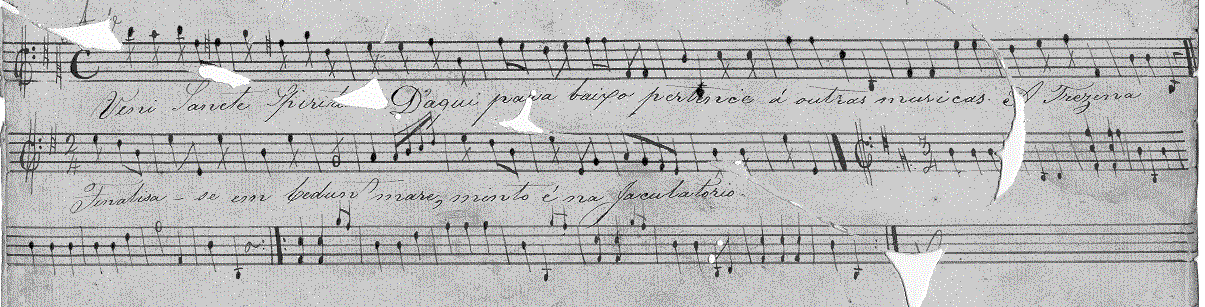 Veni Sancte Spiritu
D'aqui para baixo pertence á outras musicas. A Trezena
2/4
3/2
Finalisa - se em mento é na Jaculatorio.